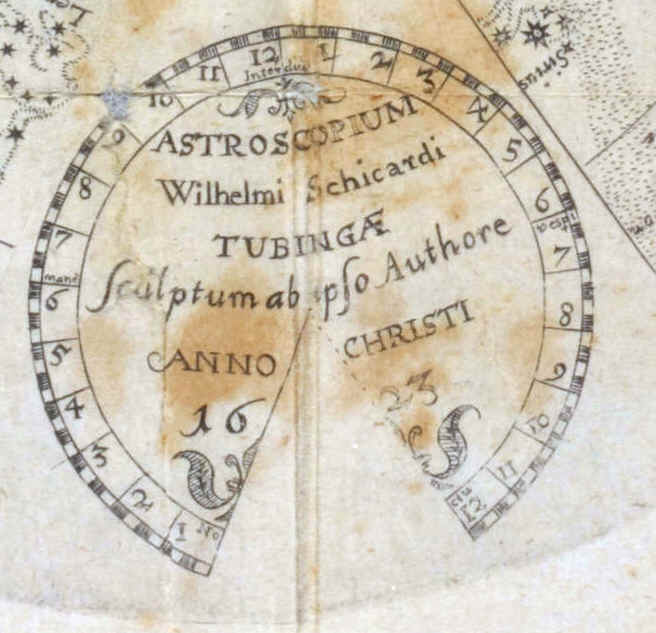 9 10 11 12 1 2 3 4 5 6 7 8 9 10 11 12
Interdiu
ASTROSCOPIUM
Wilhelmi Schicardi
TUBINGÆ
Sculptum ab ipso Authore
ANNO CHRISTI
16 23
8
7
mane
6
5
4
3
2
1
vesp.
Sirius